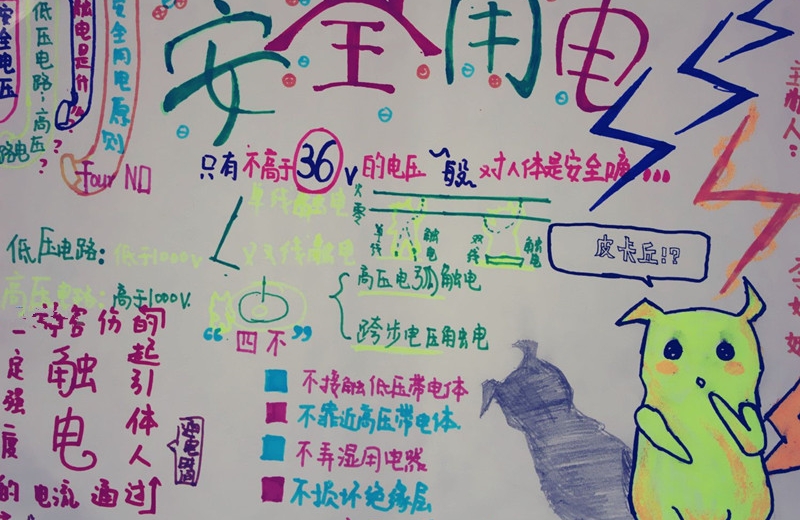 安全用电
安全电压
低压电路,高压
路电
?
触电是什么?
安全用电原则
four NO
只有不高于36V的电压一般对人体是安全哦...
单线触电
双线触电
火
零
单线
触电
双线
触电
高压电弧触电
跨步电压触电
低压电路:低于1000V
高压电路:高于1000V.
“四不”
不接触低压带电体
不靠近高压带电体
不弄湿用电器
不损坏绝缘层
一定强度
的电流通过
人体引起的
伤害
触电
皮卡丘!?
主办人: